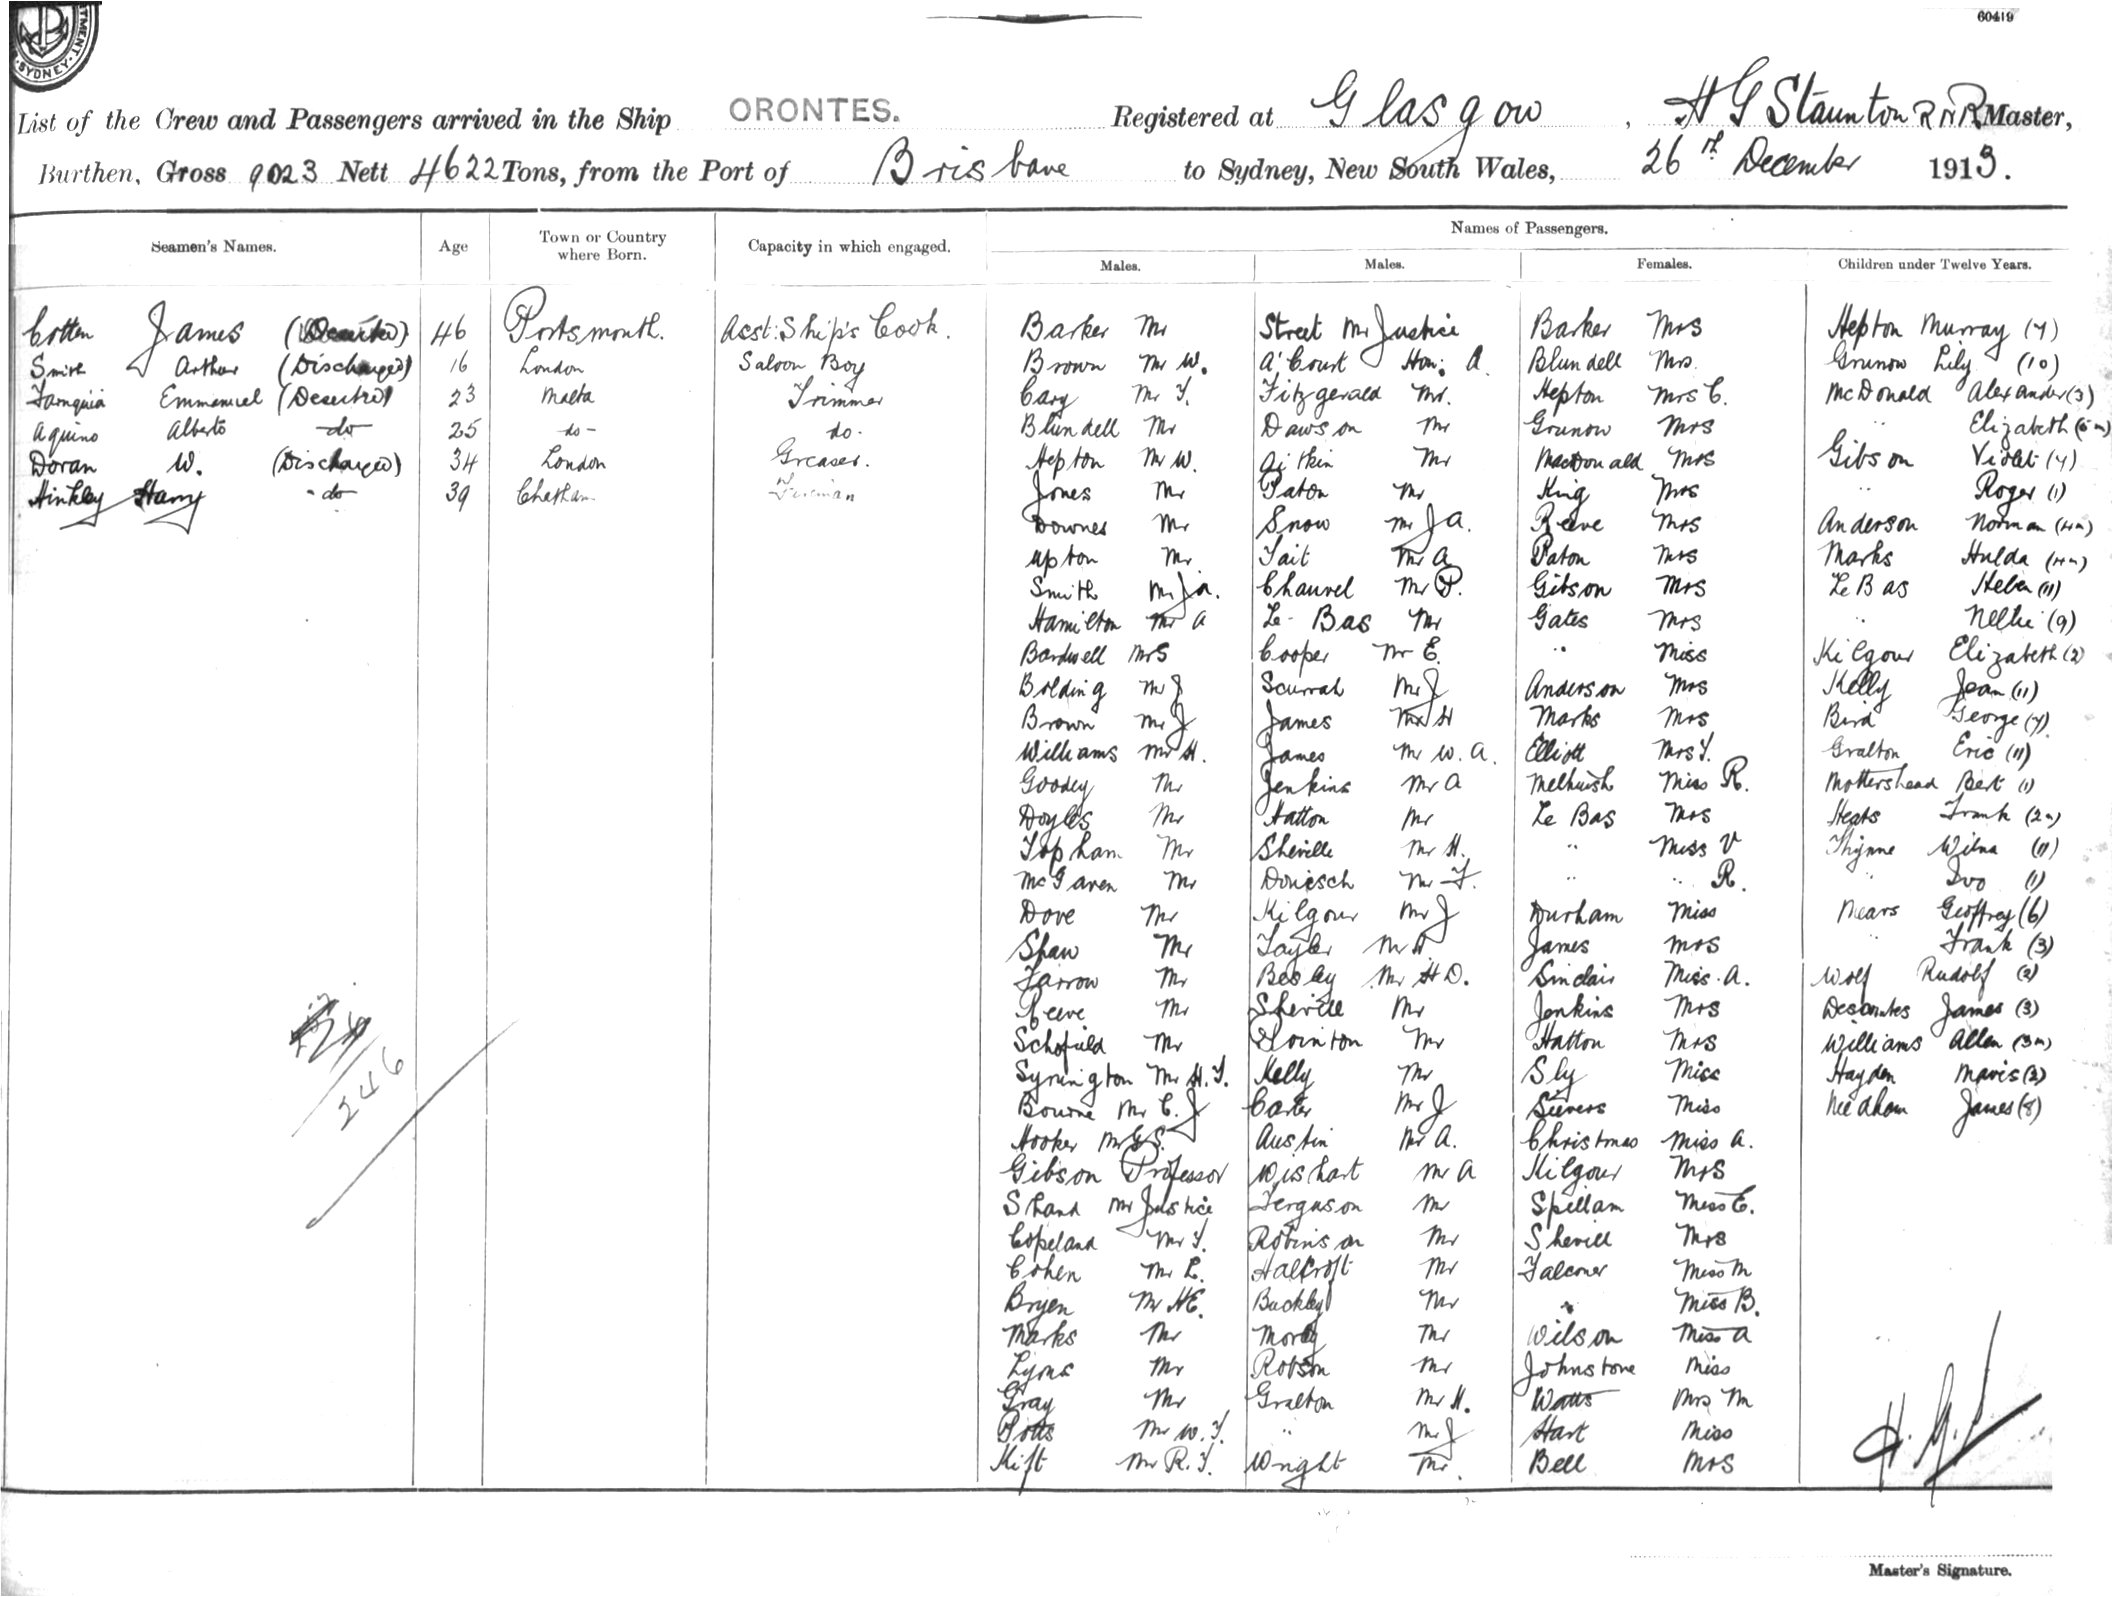 60419
SYDNEY
List of the Crew and Passengers arrived in the Ship ORONTES. Registered at Glasgow, H G Staunton RNR Master,
Burthen, Gross 9023 Nett 4622 Tons, from the Port of Brisbane to Sydney, New South Wales, 26th December 1913.
Names of Passengers.
Seamen's Names. Age Town or Country where Born. Capacity in which engaged. Males. Males. Females. Children under Twelve Years.
Cotten James 46 Portsmouth. Asst: Ship's Cook. Barker Mr Street Mr Justice Barker Mrs Hepton Murray (7)
Smith Arthur (Discharged) 16 London Saloon Boy Brown Mr W. A'Court Hon: A. Blundell Mrs. Grunow Lily (10)
Emmanuel 23 Malta Trimmer Cary Mr T. Fitzgerald Mr. Hepton Mrs C. McDonald Alexander (3)
Aquino Alberto do 25 do- do. Blundell Mr Dawson Mr Grunow Mrs " Elizabeth
Doran W. (Discharged) 34 London Greaser. Hepton Mr W. Aitkin Mr MacDonald Mrs Gibson Violet (4)
Hinkley Harry do 39 Chatham Fireman Jones Mr Paton Mr King Mrs " Roger (1)
Downes Mr Snow Mr J A. Reeve Mrs Anderson Norman (4m)
Upton Mr. Tait Mr A Paton Mrs Marks Hulda (4m)
Smith Mr J A. Chauvel Mr P. Gibson Mrs Le Bas Helen (11)
Hamilton Mr A Le Bas Mr Gates Mrs " Nellie (9)
Bardwell Mrs Cooper Mr E. " Miss Kilgour Elizabeth (2)
Bolding Mr J Scurrah Mr J Anderson Mrs Kelly Jean (11)
Brown Mr J James Mr H Marks Mrs Bird George (7)
Williams Mr H. James Mr W. A. Elliott Mrs T. Gralton Eric (11)
Goodey Mr Jenkins Mr A Melhuish Miss R. Mottershead Bert (1)
Doyles Mr Hatton Mr Le Bas Mrs Heats Frank (2m)
Topham Mr Sheville Mr H. " Miss V Thynne Wilna (11)
McGaren Mr Doniesch Mr F. " " R. " Ivo (1)
Dove Mr Kilgour Mr J Durham Miss Mears Geoffrey (6)
Shaw Mr Tayler Mr H James Mrs " Frank (3)
Farrow Mr Besley Mr H D. Sinclair Miss A. Wolf Rudolf (2)
Reeve Mr Shevill Mr Jenkins Mrs Descontes James (3)
Schofield Mr Swinton Mr Hatton Mrs Williams Allen (3m)
Symington Mr H. T. Kelly Mr Sly Miss Hayden Mavis (2)
Bourne Mr C. J Carter Mr J Sievers Miss Needham James (8)
Hooker Mr G S. Austin Mr A. Christmas Miss A.
Gibson Professor Wishart Mr A Kilgour Mrs
Shand Mr Justice Ferguson Mr Spillam Miss E.
Copeland Mr T. Robinson Mr Shevill Mrs
Cohen Mr L. Halcroft Mr Falconer Miss M
Bryen Mr H E. Buckley Mr " Miss B.
Marks Mr Morey Mr Wilson Miss A
Lyons Mr Robson Mr Johnstone Miss
Gray Mr Gralton Mr H. Watts Mrs M
Potts Mr W. T. " Mr J Hart Miss
Kift Mr R. T. Wright Mr. Bell Mrs
246
Master's Signature.